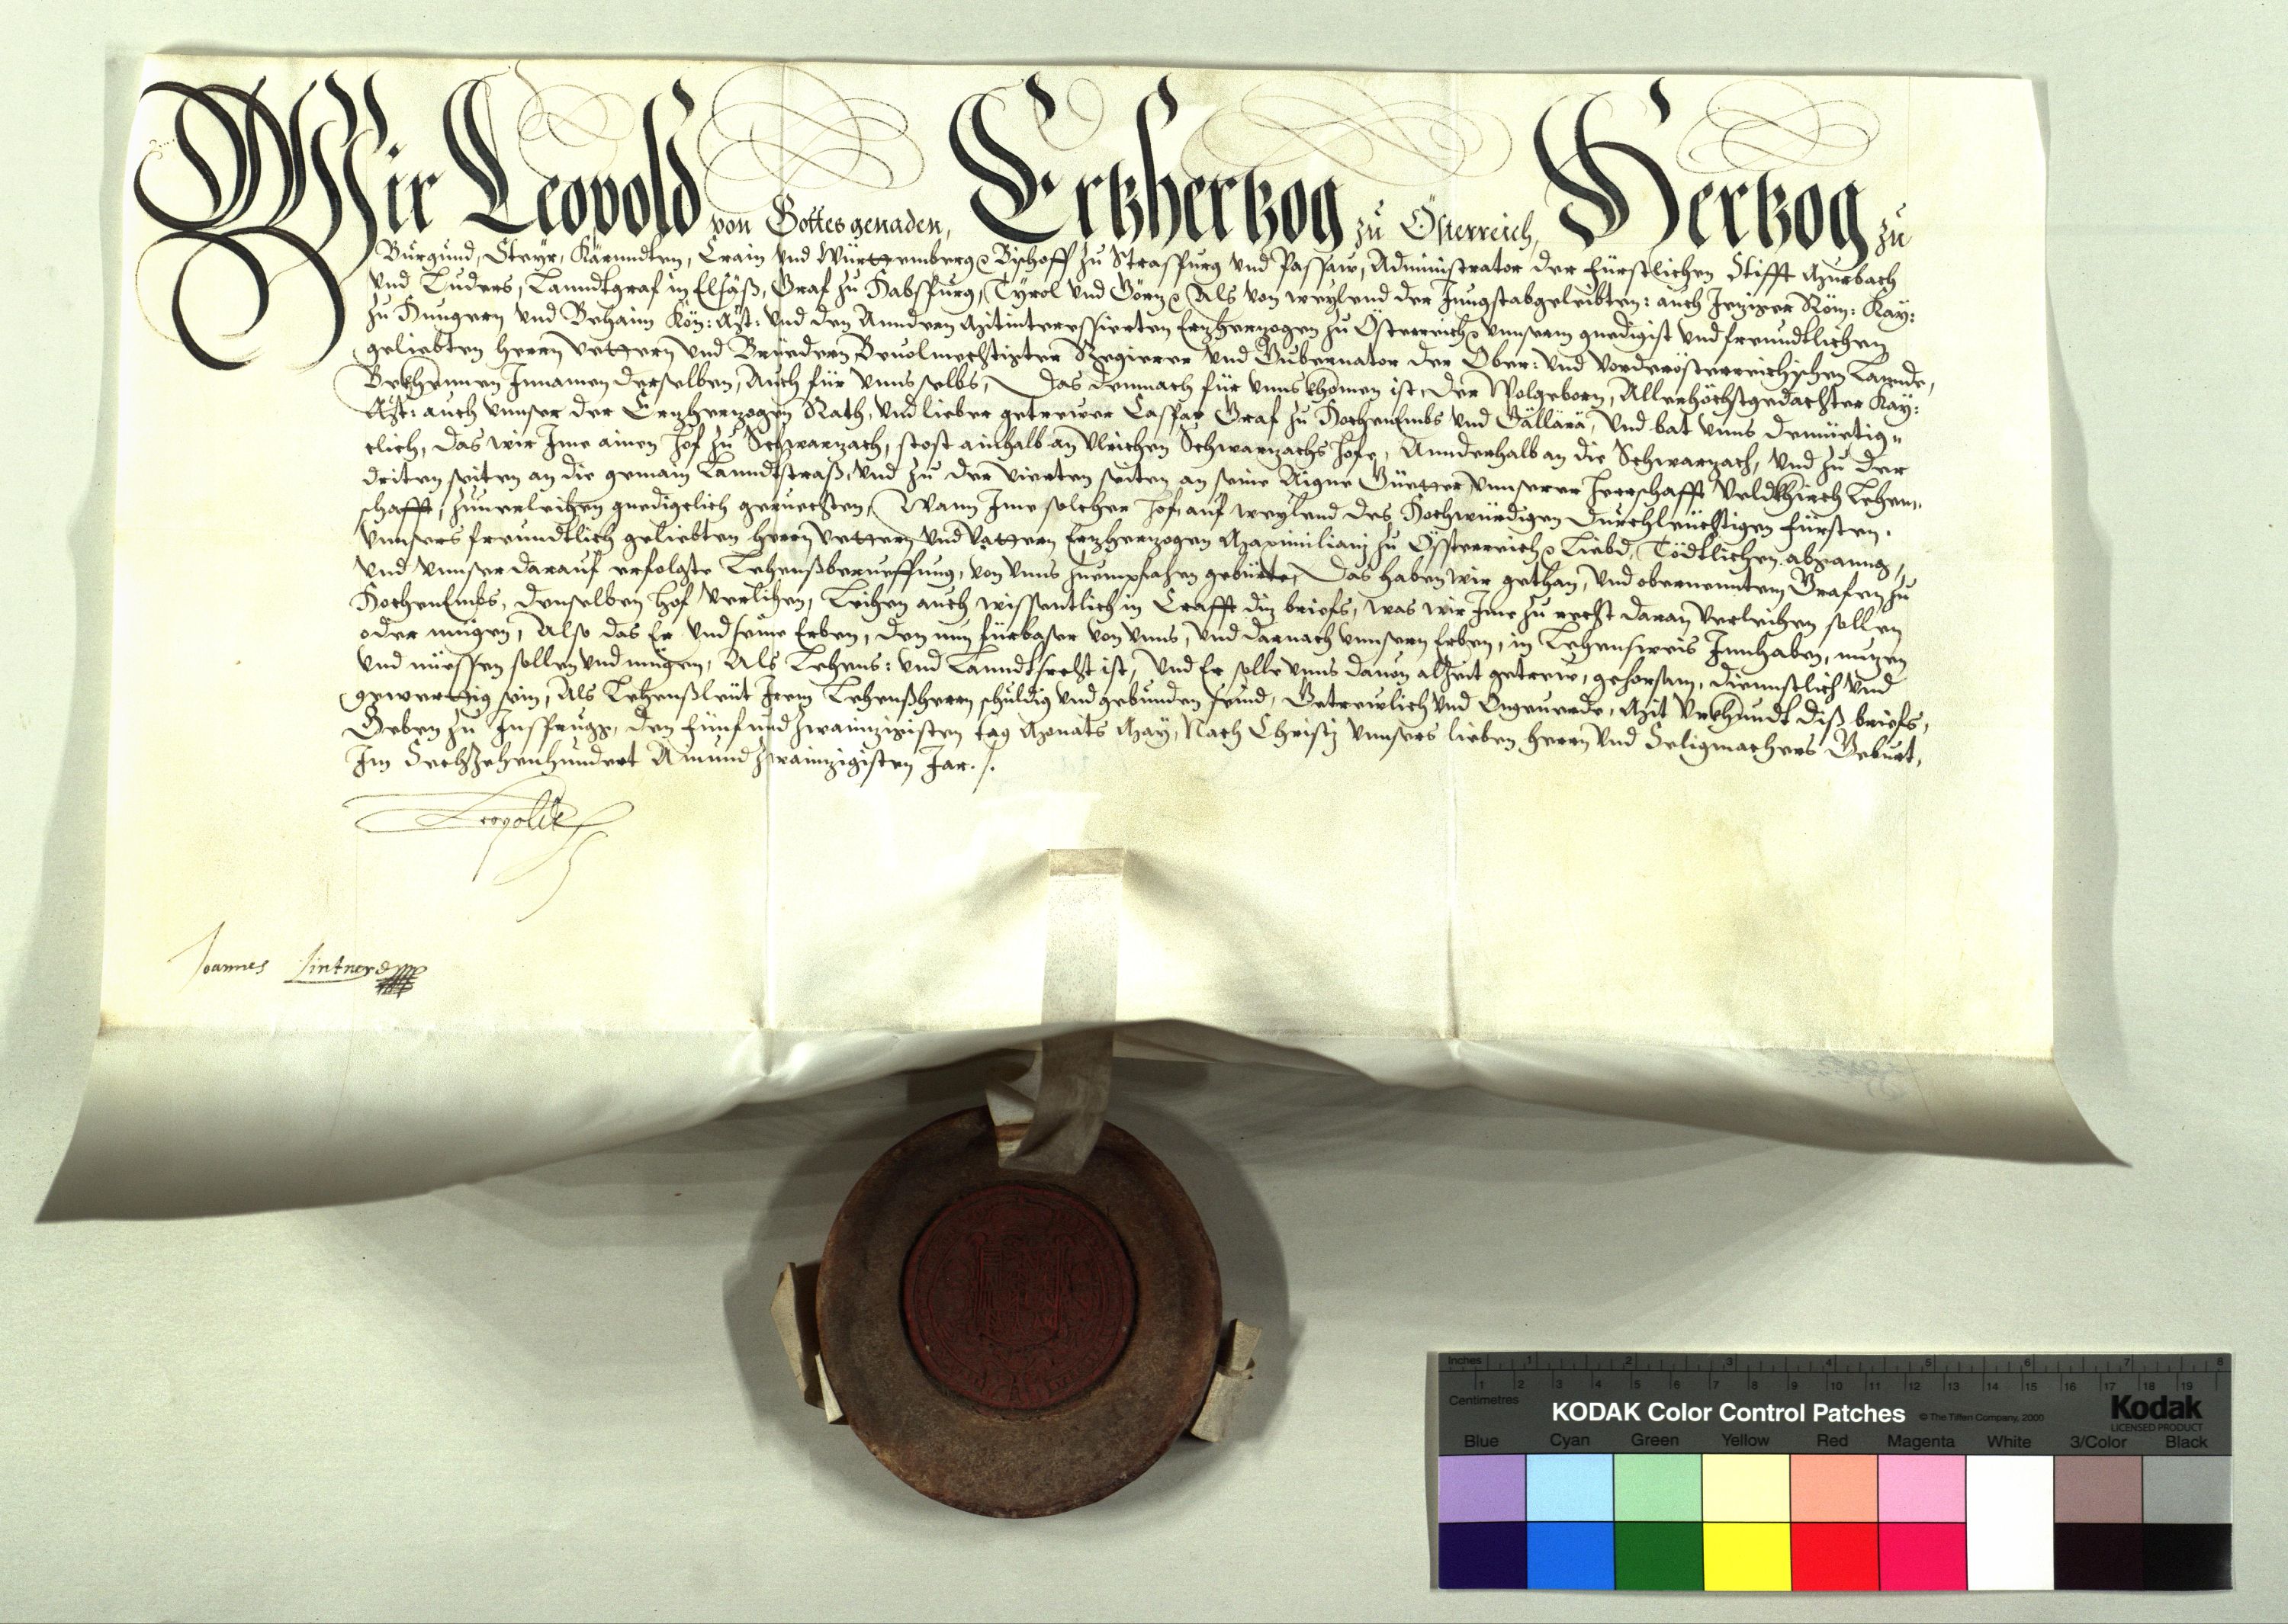 Wir Leopold von Gottes genaden, Ertzhertzog zu Österreich, Hertzog zu
Burgund, Steyr, Kärnndten, Crain und Württemberg, Bischoff zu Straspurg und Passaw, Administrator der Fürstlichen Stifft Murbach
und Luders, Lanndtgraf in Elsäß, Graf zu Habspurg, Tyrol und Görz, Als von weylend der Jungstabgeleibten: auch Jeziger Röm: Kay:
zu Hungern und Behaim Kön: Mst: und den Anndern Mitinteressierten Erzherzogen zu Österreich, unnserm gnedigist und freundtlichen
geliebten Herrn Vettern und Bruedern Bevolmechtigter Regierer und Gubernator der Ober: und vorderösterreichischen Lannde,
Bekhennen Innamen derselben, Auch für unns selbs, Das demnach für unns khomen ist, der Wolgeborn, Allerhöchstgedachter Kay:
Mst: auch unnser der Erzherzogen Rath, und lieber getrewer Caspar Graf zu Hochenembs und Gällärä, und bat unns demüetig„
clich, das wir Ime ainen Hof zu Schwarzach, stost ainhalb an Ulrichen Schwarzachs Hofe, Annderhalb an die Schwarzach, und zu der
driten seiten an die gemain Lanndtstraß, und zu der vierten seiten an seine Aigne Güetter unnserer Herrschafft Veldtkhirch Lehen„
schafft, zuverleihen gnedigclich geruechten, Wann Ime solcher Hof auf weylend des Hochwürdigen Durchleüchtigen Fürsten,
unnsers freundtlich geliebten Herrn Vettern und Vattern Erzherzogen Maximiliani zu Österreich, Liebd, Tödtlichen abganng,
und unnser darauf erfolgte Lehenßberueffung, von unns zuempfahen gebürte, Das haben wir gethan, und obernennten Grafen zu
Hochenembs, denselben Hof verlihen, Leihen auch wissentlich in Crafft diz briefs, was wir Ime zu recht daran verleihen sollen
oder mügen, Also das Er und seine Erben, den nun fürbaser von unns, und darnach unnsern Erben, in Lehensweis Innhaben, nuzen
und niessen sollen und mügen, Als Lehens: und Lanndtsrecht ist, und Er solle unns davon alzeit getrew, gehorsam, diennstlich und
gewerttig sein, Als Lehenßleüt Irem Lehenßherrn schuldig und gebunden seind, Getrewlich und Ongeverde, Mit Urkhundt diß briefs,
Geben zu Insprugg, den Fünfundzwainzigisten tag Monats May, Nach Christi unnsers lieben Herrn und Seligmachers Geburt,
Im Sechzehenhundert Ainundzwainzigisten Jar. /.
Leopold
Joannes Lintner
Inches 1 2 3 4 5 6 7 8
Centimetres 1 2 3 4 5 6 7 8 9 10 11 12 13 14 15 16 17 18 19
KODAK Color Control Patches © The Tiffen Company, 2000 Kodak
LICENSED PRODUCT
Blue Cyan Green Yellow Red Magenta White 3/Color Black